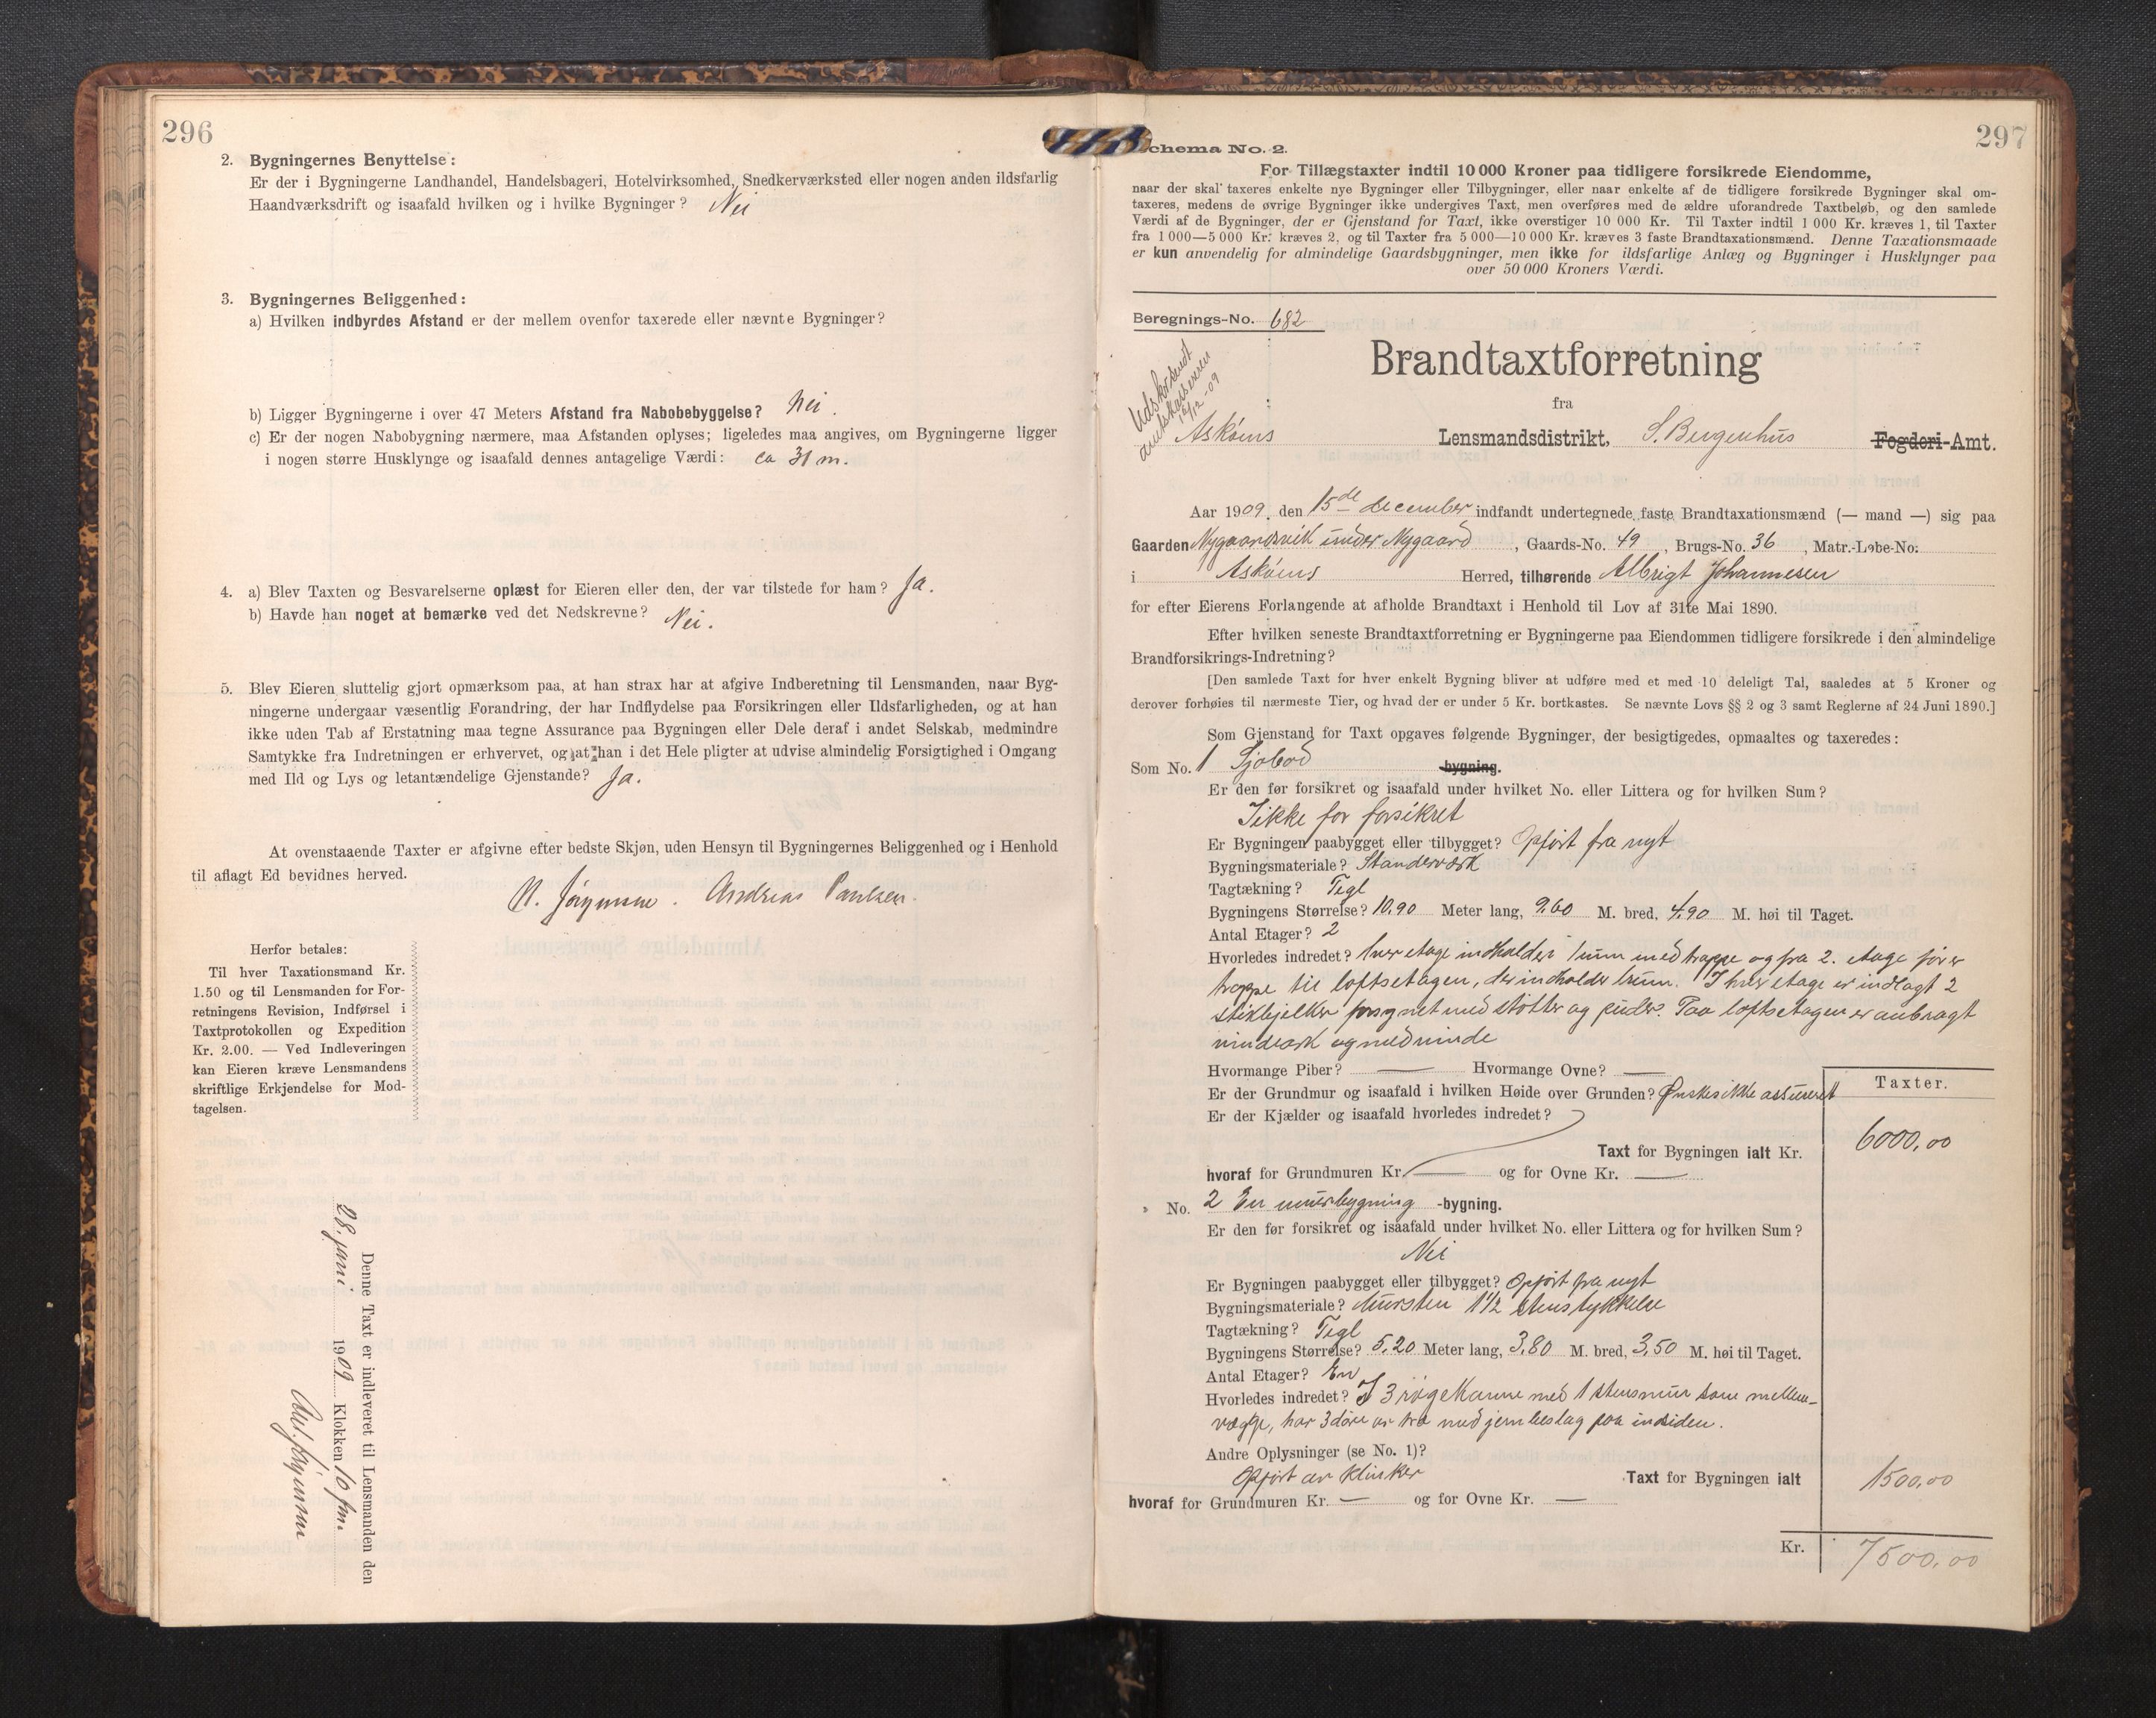 296
2. Bygningernes Benyttelse:
Er der i Bygningerne Landhandel, Handelsbageri, Hotelvirksomhed, Snedkerværksted eller nogen anden ildsfarlig
Haandværksdrift og isaafald hvilken og i hvilke Bygninger? Nei
3. Bygningernes Beliggenhed:
a) Hvilken indbyrdes Afstand er der mellem ovenfor taxerede eller nævnte Bygninger?
b) Ligger Bygningerne i over 47 Meters Afstand fra Nabobebyggelse? Nei.
c) Er der nogen Nabobygning nærmere, maa Afstanden oplyses; ligeledes maa angives, om Bygningerne ligger
i nogen større Husklynge og isaafald dennes antagelige Værdi: ca 31 m.
4. a) Blev Taxten og Besvarelserne oplæst for Eieren eller den, der var tilstede for ham? Ja.
b) Havde han noget at bemærke ved det Nedskrevne? Nei.
5. Blev Eieren sluttelig gjort opmærksom paa, at han strax har at afgive Indberetning til Lensmanden, naar Byg-
ningerne undergaar væsentlig Forandring, der har Indflydelse paa Forsikringen eller Ildsfarligheden, og at han
ikke uden Tab af Erstatning maa tegne Assurance paa Bygningen eller Dele deraf i andet Selskab, medmindre
Samtykke fra Indretningen er erhvervet, og at han i det Hele pligter at udvise almindelig Forsigtighed i Omgang
med Ild og Lys og letantændelige Gjenstande? Ja.
At ovenstaaende Taxter er afgivne efter bedste Skjøn, uden Hensyn til Bygningernes Beliggenhed og i Henhold
til aflagt Ed bevidnes herved.
N. Jørgensen. Andreas Paulsen.
Herfor betales:
Til hver Taxationsmand Kr.
1.50 og til Lensmanden for For-
retningens Revision, Indførsel i
Taxtprotokollen og Expedition
Kr. 2.00. — Ved Indleveringen
kan Eieren kræve Lensmandens
skriftlige Erkjendelse for Mod-
tagelsen.
Denne Taxt er indleveret til Lensmanden den
28. juni 1909 Klokken 10 fm.
297
Schema No. 2.
For Tillægstaxter indtil 10 000 Kroner paa tidligere forsikrede Eiendomme,
naar der skal taxeres enkelte nye Bygninger eller Tilbygninger, eller naar enkelte af de tidligere forsikrede Bygninger skal om-
taxeres, medens de øvrige Bygninger ikke undergives Taxt, men overføres med de ældre uforandrede Taxtbeløb, og den samlede
Værdi af de Bygninger, der er Gjenstand for Taxt, ikke overstiger 10 000 Kr. Til Taxter indtil 1 000 Kr. kræves 1, til Taxter
fra 1 000—5 000 Kr. kræves 2, og til Taxter fra 5 000—10 000 Kr. kræves 3 faste Brandtaxationsmænd. Denne Taxationsmaade
er kun anvendelig for almindelige Gaardsbygninger, men ikke for ildsfarlige Anlæg og Bygninger i Husklynger paa
over 50 000 Kroners Værdi.
Beregnings-No. 682
Udskr. sendt
amtskassereren
16/12-09
Brandtaxtforretning
fra
Askøens Lensmandsdistrikt, S. Bergenhus Fogderi-Amt.
Aar 1909, den 15de december indfandt undertegnede faste Brandtaxationsmænd (— mand —) sig paa
Gaarden Nygaardsvik under Nygaard, Gaards-No. 49, Brugs-No. 36, Matr.-Løbe-No:
i Askøens Herred, tilhørende Albrigt Johannesen
for efter Eierens Forlangende at afholde Brandtaxt i Henhold til Lov af 31te Mai 1890.
Efter hvilken seneste Brandtaxtforretning er Bygningerne paa Eiendommen tidligere forsikrede i den almindelige
Brandforsikrings-Indretning?
[Den samlede Taxt for hver enkelt Bygning bliver at udføre med et med 10 deleligt Tal, saaledes at 5 Kroner og
derover forhøies til nærmeste Tier, og hvad der er under 5 Kr. bortkastes. Se nævnte Lovs §§ 2 og 3 samt Reglerne af 24 Juni 1890.]
Som Gjenstand for Taxt opgaves følgende Bygninger, der besigtigedes, opmaaltes og taxeredes:
Som No. 1 Sjøbod bygning.
Er den før forsikret og isaafald under hvilket No. eller Littera og for hvilken Sum?
Ikke før forsikret
Er Bygningen paabygget eller tilbygget? Opført fra nyt
Bygningsmateriale? Standerværk
Tagtækning? Tegl
Bygningens Størrelse? 10.90 Meter lang, 9.60 M. bred, 4.90 M. høi til Taget.
Antal Etager? 2
Hvorledes indredet? hver etage indholder 1 rum med trappe og fra 2. etage fører
trappe til loftsetagen, der indholder 1 rum. I hver etage er indlagt 2
stikbjelker forsynet med støtter og puder. Paa loftsetagen er anbragt
vindeark og nedvinde
Hvormange Piber? — Hvormange Ovne? —
Er der Grundmur og isaafald i hvilken Høide over Grunden? Ønskes ikke assureret
Er der Kjælder og isaafald hvorledes indredet?
Taxter.
Taxt for Bygningen ialt Kr. 6000,00
hvoraf for Grundmuren Kr. — og for Ovne Kr. —
» No. 2 En murbygning -bygning.
Er den før forsikret og isaafald under hvilket No. eller Littera og for hvilken Sum?
Nei
Er Bygningen paabygget eller tilbygget? Opført fra nyt
Bygningsmateriale? Mursten 1 1/2 stens tykkelse
Tagtækning? Tegl
Bygningens Størrelse? 5.20 Meter lang, 3.80 M. bred, 3.50 M. høi til Taget.
Antal Etager? En
Hvorledes indredet? I 3 røgekamre med 1 stensmur som mellem-
vægge, har 3 døre av træ med jernbeslag paa indsiden.
Andre Oplysninger (se No. 1)?
Opført av klinker Taxt for Bygningen ialt 1500,00
hvoraf for Grundmuren Kr. — og for Ovne Kr. —
Kr. 7500,00